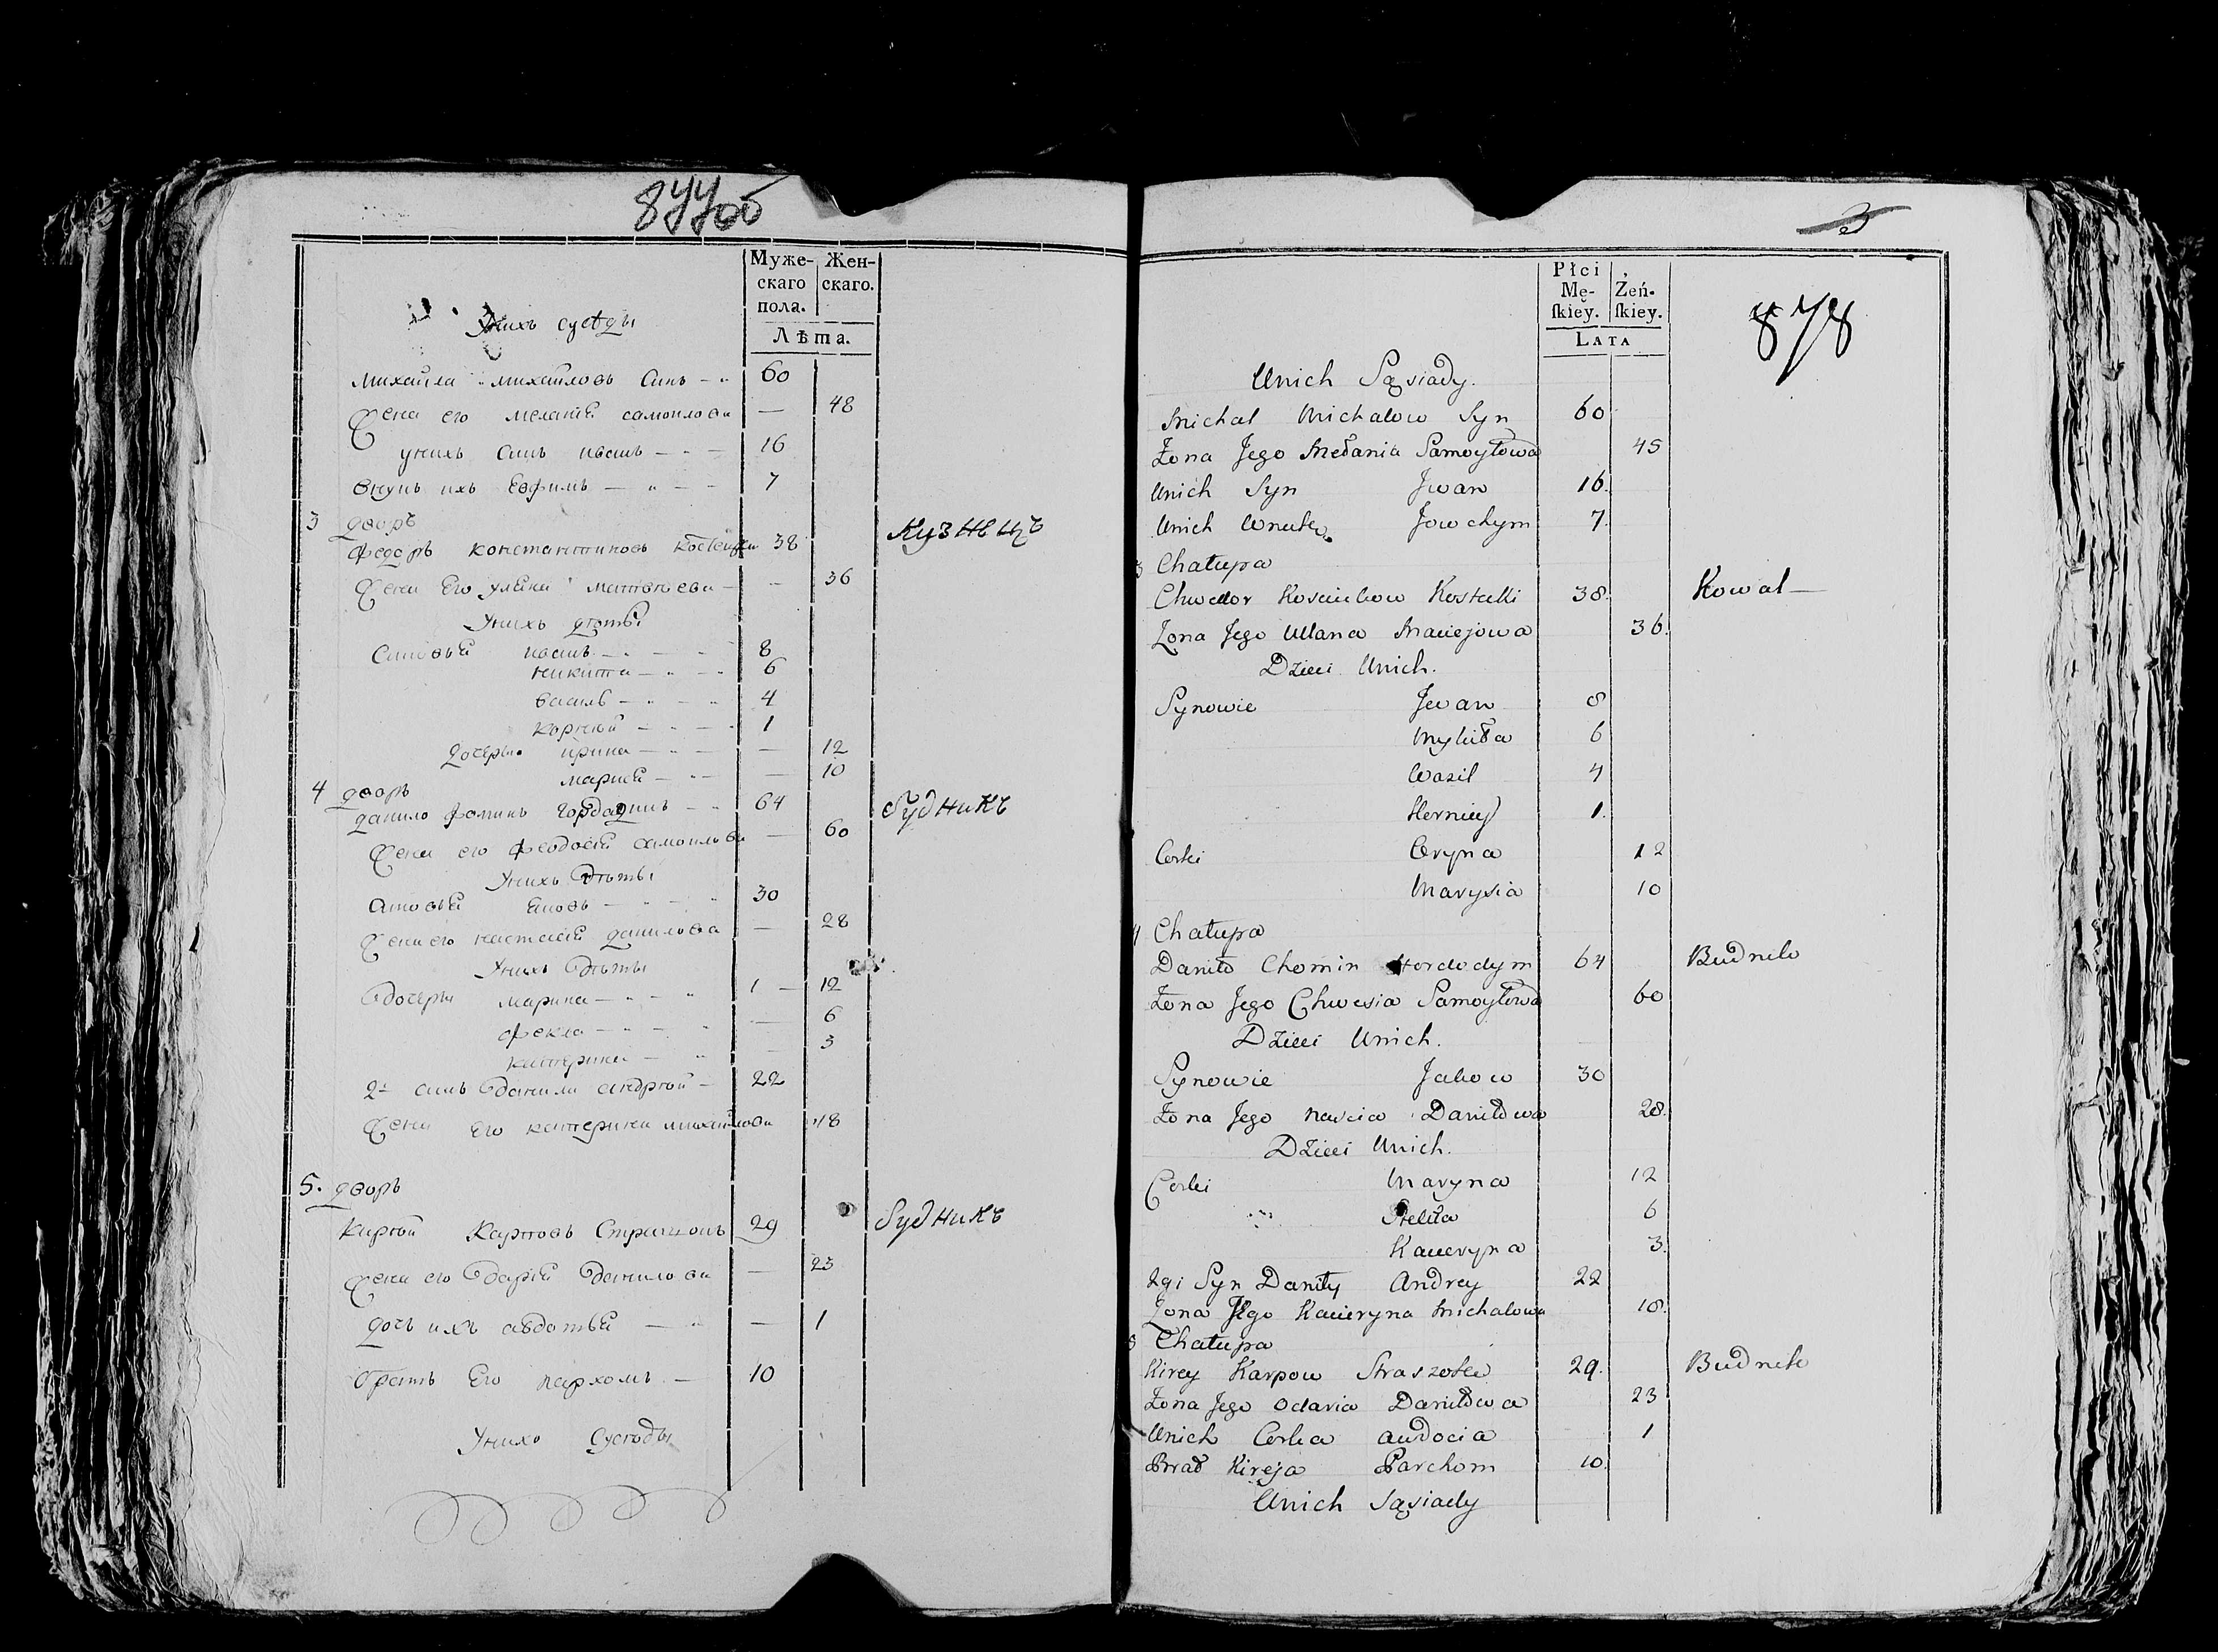 877об
Муже-
скаго
пола.
Жен-
скаго.
Лѣта.
Унихъ сусѣды
михайла михайловъ синъ 60
жена его меланія самоилова — 48
унихъ синъ иванъ — 16
внукъ ихъ Евфимъ — 7
3 дворъ
федоръ константиновъ 38 Кузнецъ
жена Его уляна матвѣева — 36
Унихъ дѣти
синовья иванъ — 8
никита — 6
василь — 4
корнѣй — 1
дочери ирина — 12
мария — 10
4 дворъ
данило фоминъ 64 будникъ
жена его феодосія самоилова — 60
Унихъ дѣти
синовья яковъ — 30
жена его настасія данилова — 28
Унихъ дѣти
дочери марина — 12
фекла — 6
катерина — 3
2й синъ данили андрѣй — 22
жена Его катерина михайлова 18
5. дворъ
кирѣй карповъ 29 будникъ
жена его дарія данилова — 23
дочъ ихъ авдотья — 1
братъ Его пархомъ — 10
Унихъ сусѣды
3
878
Płci
Mę-
ſkiey.
Żeń-
ſkiey.
LATA
Unich Sąsiady.
Michał Michałow Syn 60
Żona Jego Mełania Samoyłowa 45
Unich Syn Jwan 16.
Unich Wnuk Jowchym 7.
3 Chałupa
Chwedor 38. Kowal —
Żona Jego Ullana Maciejowa 36.
Dzieci Unich.
Synowie Jwan 8
Mykita 6
Wasil 4
Korniey 1.
Corki Oryna 12
Marysia 10
4 Chałupa
Daniło Chomin Hordodym 64 Budnik
Żona Jego Chwesia Samoyłowa 60
Dzieci Unich.
Synowie Jakow 30
Żona Jego Nascia Daniłowa 28.
Dzieci Unich.
Corki Maryna 12
6
Kateryna 3.
2gi Syn Daniły Andrey 22
Żona Jego Kateryna Michałowa 18.
5 Chałupa
Kirey Karpow Straszok 29. Budnik
Żona Jego Odaria Daniłowa 23
Unich Corka Audocia 1
Brat Kireja Parchom 10.
Unich Sąsiady